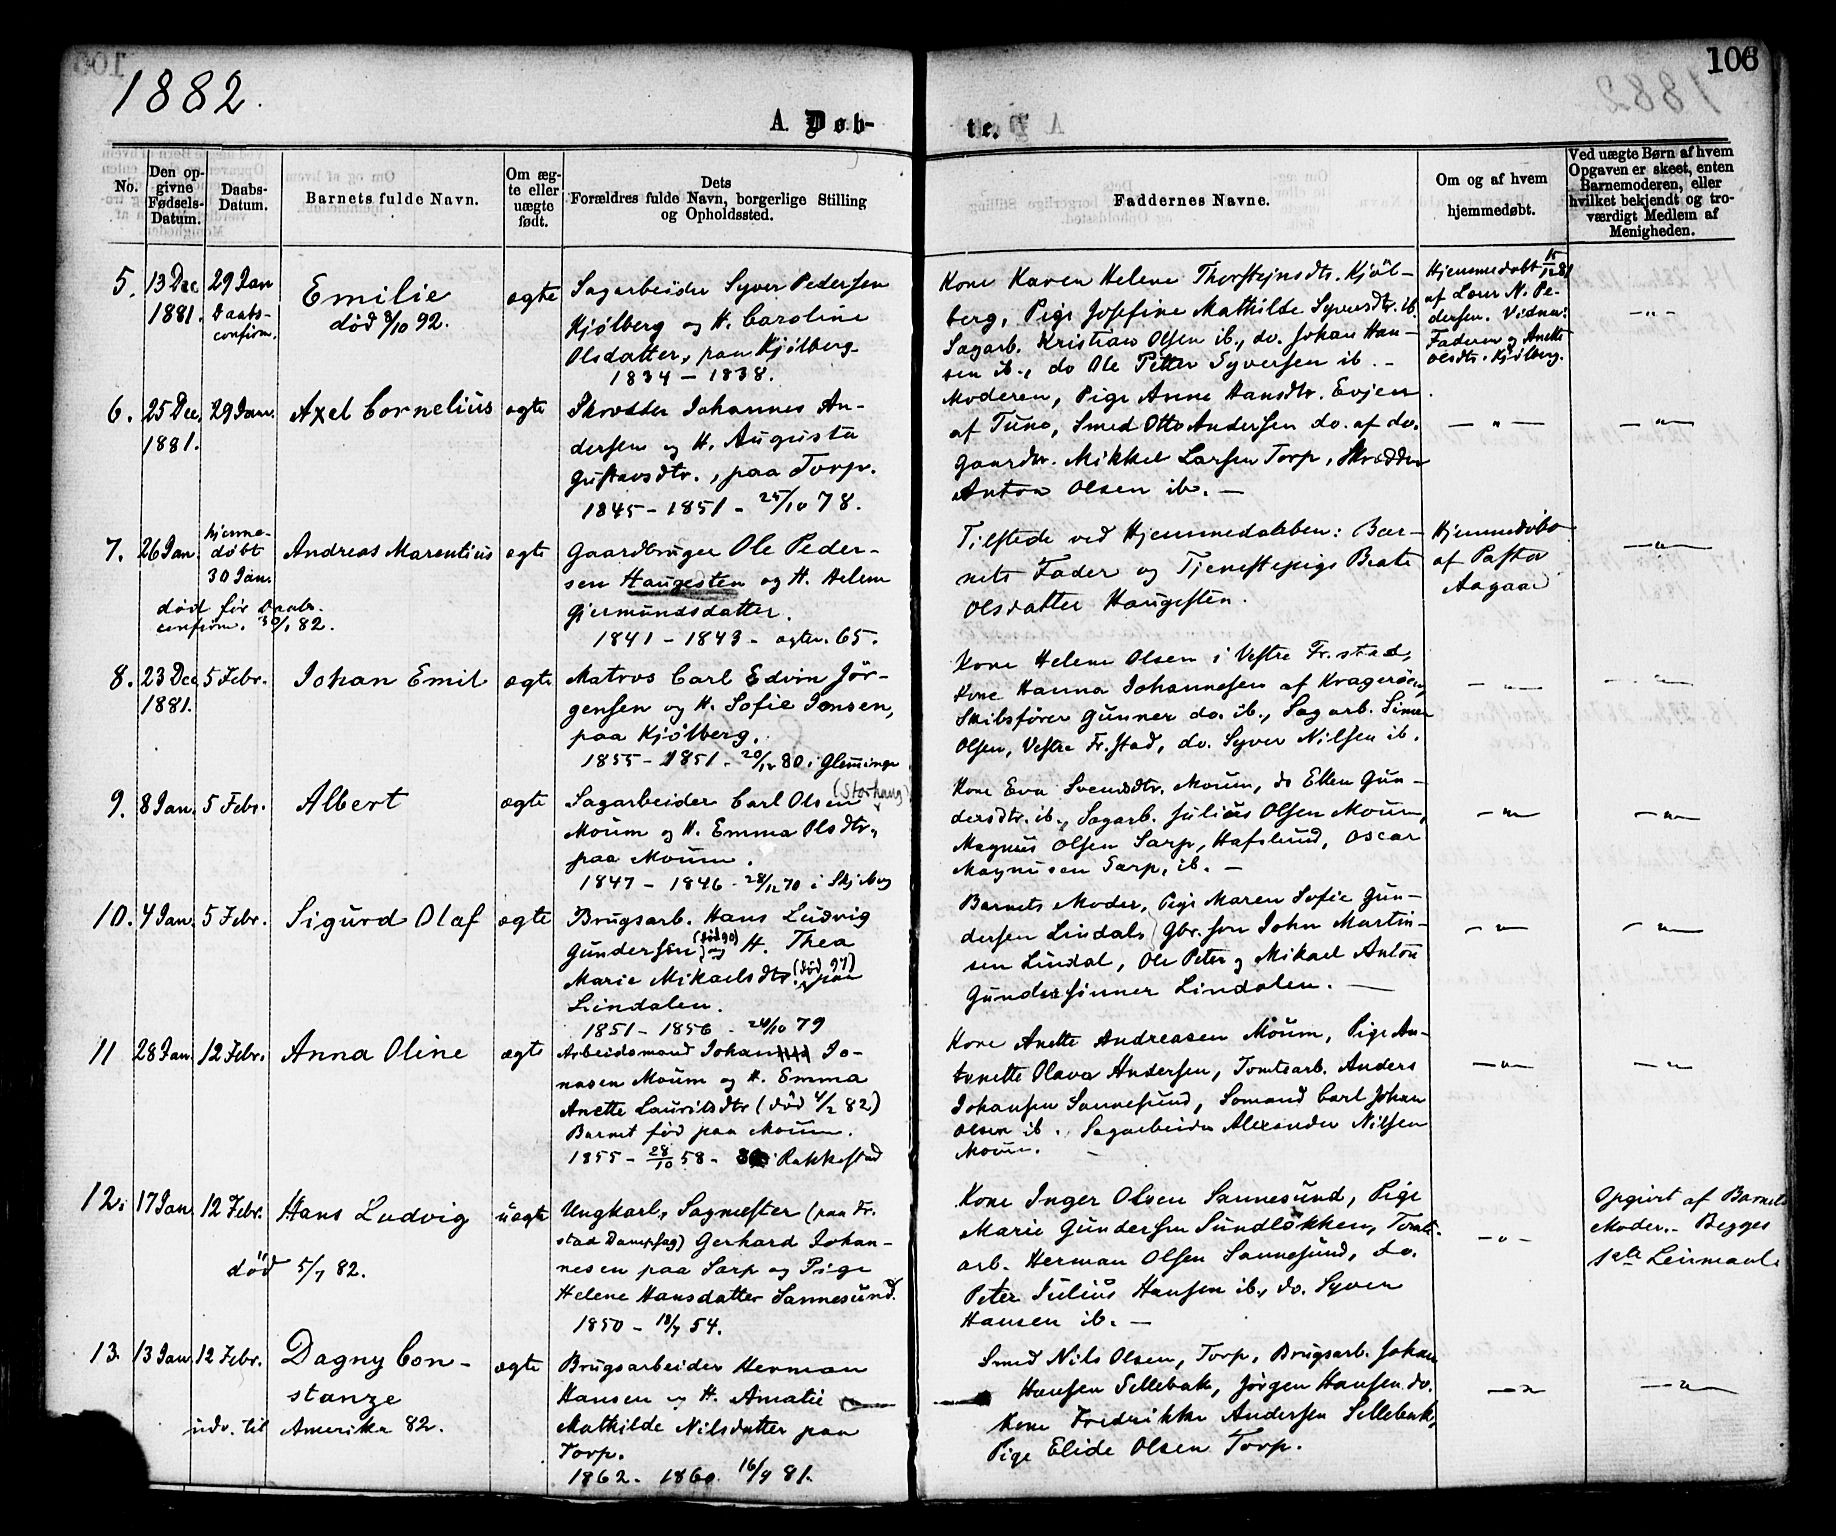 1882.
106
A. Døb-
te.
No.
Den op-
givne
Fødsels-
Datum.
Daabs-
Datum.
Barnets fulde Navn.
Om æg-
te eller
uægte
født.
Dets
Forældres fulde Navn, borgerlige Stilling
og Opholdssted.
Faddernes Navne.
Om og af hvem
hjemmedøbt.
Ved uægte Børn af hvem
Opgaven er skeet, enten
Barnemoderen, eller
hvilket bekjendt og tro-
værdigt Medlem af
Menigheden.
5.
13 Dec
1881.
29 Jan
Daabs-
confirm.
Emilie
død 3/10 92.
ægte
Sagarbeider Syver Pedersen
Kjølberg og H. Caroline
Olsdatter, paa Kjølberg.
1834 – 1838.
Kone Karen Helene Thorstejnsdtr. Kjöl-
berg, Pige Josefine Mathilde Syversdtr. ib.
Sagarb. Kristian Olsen ib., do. Johan Han-
sen ib., do Ole Petter Syversen ib. –
Hjemmedøbt
af N. Pe-
dersen. Vidner:
Faderen og Anette
Olsdtr. Kjølberg.
– „ –
6.
25 Dec
1881.
29 Jan.
Axel Cornelius
ægte
Skrædder Johannes An-
dersen og H. Augusta
Gustavsdtr., paa Torp.
1845 – 1851 – 25/10 78.
Moderen, Pige Anne Hansdtr. Evjen
af Tune, Smed Otto Andersen do. af do.
Gaardbr. Mikkel Larsen Torp, Skrædder
Anton Olsen ib. –
– „ –
– „ –
7.
26 Jan.
hjemme-
døbt
30 Jan.
død før Daabs-
confirm. 30/1 82.
Andreas Marentius
ægte
Gaardbruger Ole Peder-
sen Haugesten og H. Helene
Gjermundsdatter.
1841 – 1843 – 65.
Tilstede ved Hjemmedaaben: Bar-
nets Fader og Tjenestepige Beate
Olsdatter Haugesten.
Hjemmedøbt
af Pastor
Aagaard
– „ –
8.
23 Dec
1881.
5 Febr.
Johan Emil
ægte
Matros Carl Edvin Jør-
gensen og H. Sofie Jonsen,
paa Kjølberg.
1855 – 1851 – 20/12 80 i Glemminge
Kone Helene Olsen i Vestre Fr.stad,
Kone Hanna Johannesen af Kragerøen,
Skibsfører Gunner do. ib., Sagarb. Simen
Olsen, Vestre Fr.stad, do. Syver Nilsen ib.
– „ –
– „ –
9.
8 Jan.
5 Febr.
Albert
ægte
Sagarbeider Carl Olsen (Storhaug)
Moum og H. Emma Olsdtr.,
paa Moum.
1847 – 1846 – 28/12 70 i Skjeberg
Kone Eva Svendsdtr. Moum, do Ellen Gun-
dersdtr. ib., Sagarb. Julius Olsen Moum,
Magnus Olsen Sarp, Hafslund, Oscar
Magnusen Sarp, ib. –
– „ –
– „ –
10.
4 Jan.
5 Febr.
Sigurd Olaf
ægte
Brugsarb. Hans Ludvig
Gundersen (død 90) og H. Thea
Marie Mikaelsdtr. (død 97) paa
Lindalen.
1851 – 1856 – 24/10 79
Barnets Moder, Pige Maren Sofie Gun-
dersen Lindal, Gbr. søn John Martin-
sen Lindal, Ole Peter og Mikael Anton
Gunderssønner Lindalen. –
– „ –
– „ –
11
28 Jan.
12 Febr.
Anna Oline
ægte
Arbeidsmand Johan Jo-
nasen Moum og H. Emma
Anette Lauritsdtr (død 4/2 82)
Barnet fød paa Moum.
1855 – 28/10 58 – i Rakkestad
Kone Anette Andreasen Moum, Pige An-
tonette Olava Andersen, Tomtearb. Anders
Johansen Sannesund, Sømand Carl Johan
Olsen ib., Sagarbeider Alexander Nilsen
Moum.
– „ –
– „ –
12.
17 Jan.
12 Febr.
Hans Ludvig
død 5/7 82.
uægte
Ungkarl, Sagmester (paa Fr.
stad Dampsag) Gerhard Johan-
nesen paa Sarp og Pige
Helene Hansdatter Sannesund.
1850 – 18/7 54.
Kone Inger Olsen Sannesund, Pige
Marie Gundersen Sundløkken, Tomte-
arb. Herman Olsen Sannesund, do.
Peter Julius Hansen ib., do. Syver
Hansen ib. –
– „ –
Opgivet af Barnets
Moder. – Begges
1ste Leiermaal.
13.
13 Jan.
12 Febr.
Dagny Con-
stanze
udv. til Amerika 82.
ægte
Brugsarbeider Herman
Hansen og H. Amalie
Mathilde Nilsdatter paa
Torp.
1862. 1860. 16/9 81.
Smed Nils Olsen, Torp, Brugsarb. Johan
Hansen Sellebak, Jörgen Hansen do.
Kone Fredrikke Andersen Sellebak,
Pige Elide Olsen Torp.
– „ –
– „ –